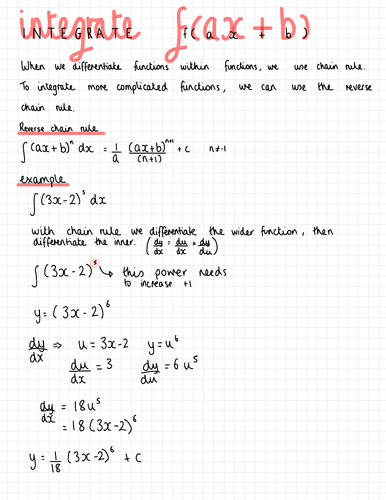 integrate f(ax+b)
INTEGRATE f(ax + b)
When we differentiate functions within functions, we use chain rule.
To integrate more complicated functions, we can use the reverse
chain rule.
Reverse chain rule
∫(ax+b)ⁿ dx = 1/a (ax+b)ⁿ⁺¹/(n+1) + c n≠-1
example
∫(3x-2)⁵ dx
with chain rule we differentiate the wider function, then
differentiate the inner. (dy/dx = du/dx × dy/du)
∫(3x-2)⁵ ↳ this power needs
to increase +1
y = (3x-2)⁶
dy/dx ⇒ u = 3x-2 y = u⁶
du/dx = 3 dy/du = 6u⁵
dy/dx = 18u⁵
= 18(3x-2)⁶
y = 1/18 (3x-2)⁶ + c